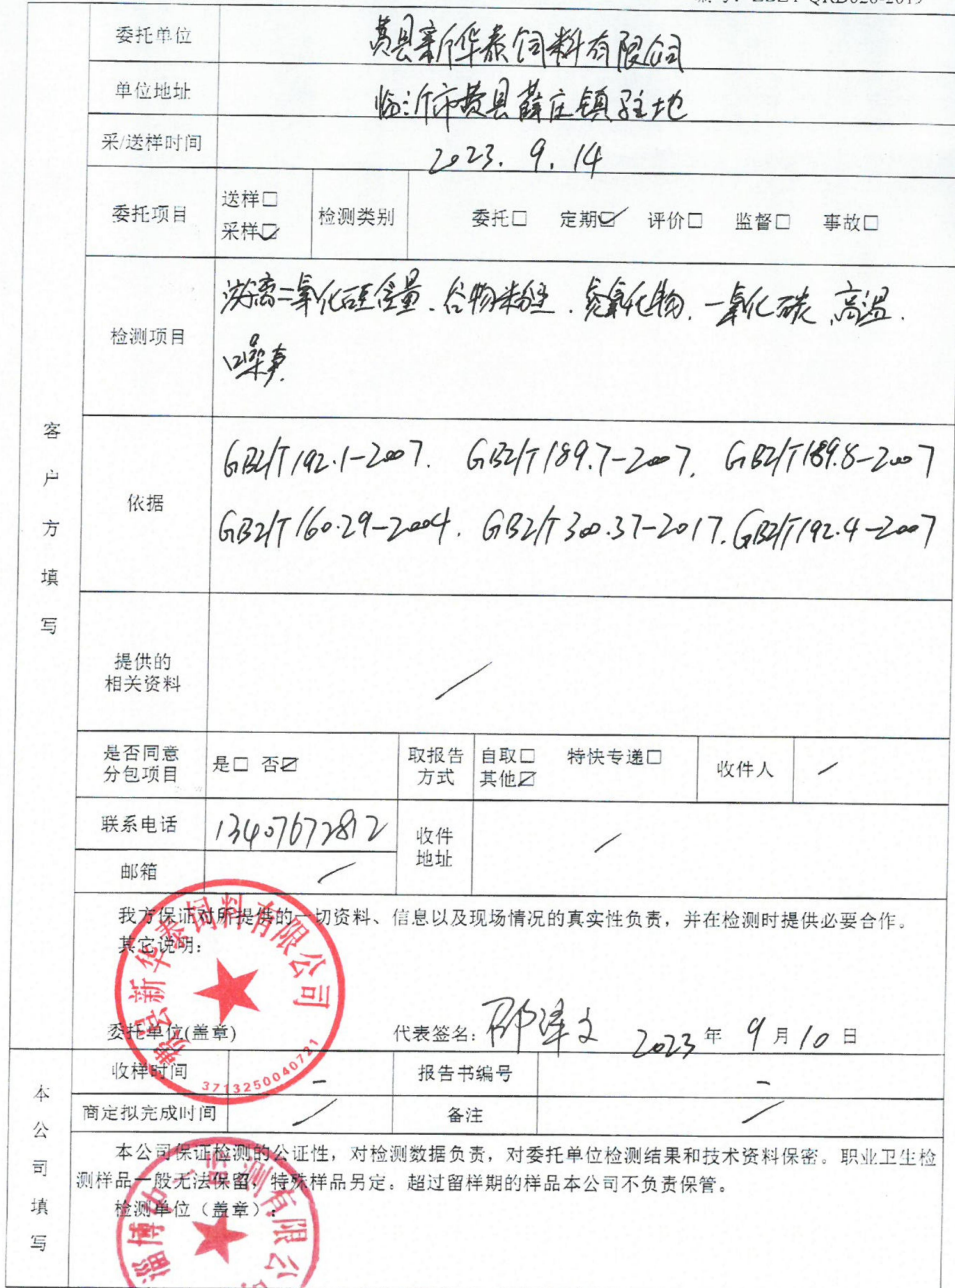 委托单位 费县新华泰饲料有限公司
单位地址 临沂市费县薛庄镇驻地
采/送样时间 2023.9.14
委托项目 送样□ 检测类别 委托□ 定期☑ 评价□ 监督□ 事故□
采样☑
检测项目 游离二氧化硅含量、谷物粉尘、氮氧化物、一氧化碳、高温、
噪声
客户方填写
依据 GBZ/T192.1-2007. GBZ/T189.7-2007. GBZ/T189.8-2007
GBZ/T160.29-2004. GBZ/T300.37-2017. GBZ/T192.4-2007
提供的
相关资料 /
是否同意 是□ 否☑ 取报告 自取□ 特快专递□ 收件人 /
分包项目 方式 其他☑
联系电话 13407672812 收件
地址 /
邮箱 /
我方保证对所提供的一切资料、信息以及现场情况的真实性负责，并在检测时提供必要合作。
其它说明：
费县新华泰饲料有限公司
3713250040721
委托单位(盖章) 代表签名： 2023年9月10日
本公司填写
收样时间 - 报告书编号 -
商定拟完成时间 / 备注 /
本公司保证检测的公证性，对检测数据负责，对委托单位检测结果和技术资料保密。职业卫生检
测样品一般无法保留，特殊样品另定。超过留样期的样品本公司不负责保管。
检测单位（盖章）：